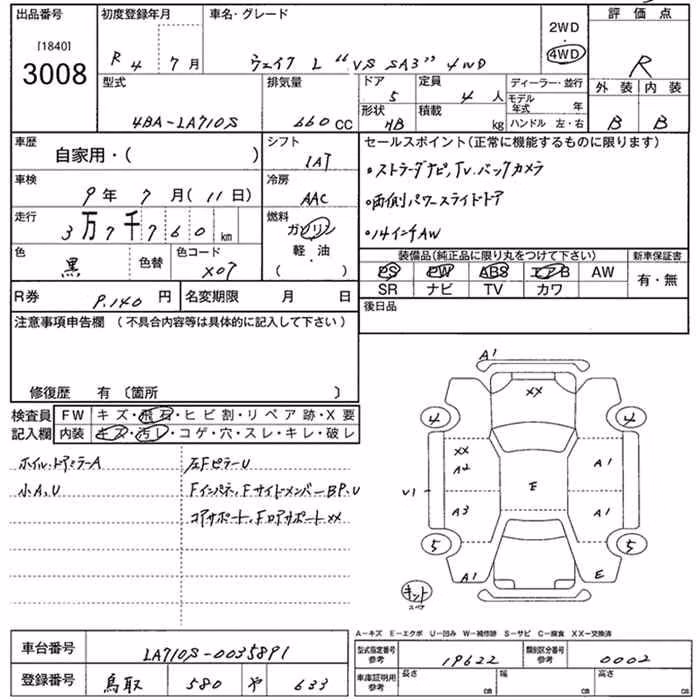 出品番号
[1840]
3008
初度登録年月
R 4 年 7 月
車名・グレード
ウェイク L "VS SA3" 4WD
2WD
・
4WD
評価点
R
外装 内装
B B
型式
4BA-LA710S
排気量
660 CC
ドア
5
定員
4 人
形状
HB
積載
kg
ディーラー・並行
モデル年式 年
ハンドル 左・右
車歴
自家用・( )
シフト
IAT
車検
9 年 7 月 (11 日)
冷房
AAC
走行
3 万 7 千 7 6 0 km
燃料
ガソリン
軽・油
( )
色
黒
色替
色コード
X07
R券
P.140 円
名変期限 月 日
セールスポイント(正常に機能するものに限ります)
・ストラーダナビ,TV.バックカメラ
・両側パワースライドドア
・14インチAW
装備品(純正品に限り丸をつけて下さい)
PS PW ABS エアB AW
SR ナビ TV カワ
新車保証書
有・無
後日品
注意事項申告欄 (不具合内容等は具体的に記入して下さい)
修復歴 有 〔箇所 〕
検査員記入欄
FW キズ・飛石・ヒビ割・リペア跡・X要
内装 キズ・汚レ・コゲ・穴・スレ・キレ・破レ
ホイル・ドアミラーA
小A、U
左FピラーU
Fインパネ、FサイドメンバーBP、U
コアサポート、FロアサポートXX
A1
XX
4 4
XX
A2
A1
E
U1
A3
A1
5 5
A1
E
キット
スペア
A-キズ E-エクボ U-凹み W-補修跡 S-サビ C-腐食 XX-交換済
車台番号
LA710S-0035891
登録番号
鳥取 580 や 633
型式指定番号
参考
19622
類別区分番号
参考
0002
車庫証明用
参考
長さ cm
幅 cm
高さ cm